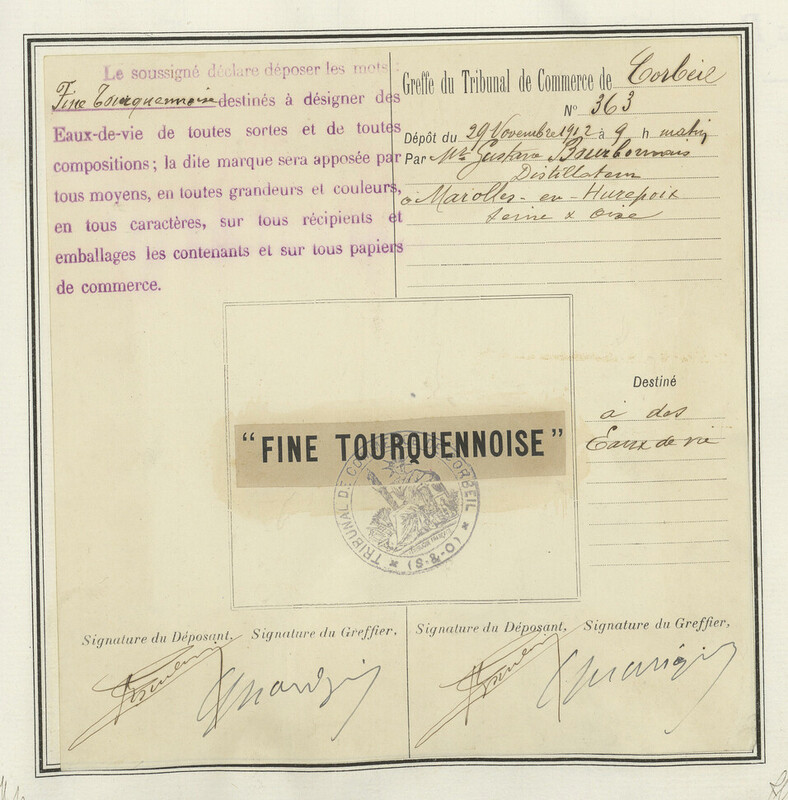 Le soussigné déclare déposer les mots :
Fine Tourquennoise destinés à désigner des
Eaux-de-vie de toutes sortes et de toutes
compositions ; la dite marque sera apposée par
tous moyens, en toutes grandeurs et couleurs,
en tous caractères, sur tous récipients et
emballages les contenants et sur tous papiers
de commerce.
Greffe du Tribunal de Commerce de Corbeil
N° 363
Dépôt du 29 Novembre 1912 à 9 h matin
Par Mr Gustave Bourbonnais
Distillateur
à Marolles-en-Hurepoix
Seine & Oise
Destiné
à des
Eaux de vie
"FINE TOURQUENNOISE"
TRIBUNAL DE COMMERCE CORBEIL
(O-&-S)
Signature du Déposant, Signature du Greffier,
Signature du Déposant, Signature du Greffier,